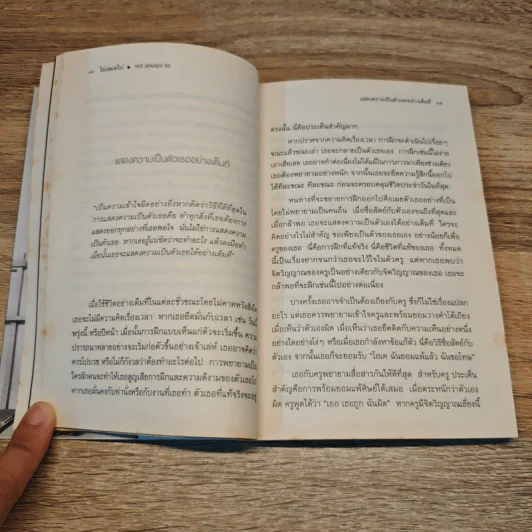 ๑๖ ไม่เสมอไป ● not always so
แสดงความเป็นตัวเธออย่างเต็มที่
"เป็นความเข้าใจผิดอย่างยิ่งหากคิดว่าวิธีที่ดีที่สุดใน
การแสดงความเป็นตัวเธอคือ ทำทุกสิ่งที่เธอต้องการ
แสดงออกทุกอย่างที่เธอพอใจ นั่นไม่ใช่การแสดง
ความเป็นตัวเธอ หากเธอรู้แน่ชัดว่าจะทำอะไร แล้วลงมือทำ
เมื่อนั้นเธอจะแสดงความเป็นตัวเธอได้อย่างเต็มที่"
เมื่อใช้ชีวิตอย่างเต็มที่ในแต่ละชั่วขณะโดยไม่คาดหวังสิ่งใด
เธอจะไม่มีความคิดเรื่องเวลา หากเธอยึดติดกับเวลา เช่น วันนี้
พรุ่งนี้ หรือปีหน้า เมื่อนั้นการฝึกแบบเห็นแก่ตัวจะเริ่มขึ้น ความ
ปรารถนาหลายอย่างจะเริ่มก่อตัวขึ้นอย่างเจ้าเล่ห์ เธออาจคิดว่า
ควรไปบวช หรือไม่ก็กังวลว่าต้องทำอะไรต่อไป การพยายามเป็น
ใครสักคนจะทำให้เธอสูญเสียการฝึกและความดีงามของตัวเธอไป
หากเธอมั่นคงกับท่านั่งหรือกับงานที่เธอทำ ตัวเธอที่แท้จริงจะอยู่
แสดงความเป็นตัวเธออย่างเต็มที่
ตรงนั้น นี่คือประเด็นสำคัญมาก
หากปราศจากความคิดเรื่องเวลา การฝึกจะดำเนินไปเรื่อยๆ
ขณะแล้วขณะเล่า เธอจะกลายเป็นตัวเธอเอง การฝึกเช่นนี้ไม่ง่าย
เอาเสียเลย เธออาจทำต่อเนื่องไม่ได้แม้ในการภาวนาเพียงช่วงเดียว
เธอต้องพยายามอย่างหนัก จากนั้นเธอจะยืดความรู้สึกนี้ออกไป
ได้ทีละขณะ ทีละขณะ ก่อนจะครอบคลุมชีวิตประจำวันในที่สุด
หนทางที่จะขยายการฝึกออกไปคือเผยตัวเธออย่างที่เป็น
โดยไม่พยายามเป็นคนอื่น เมื่อซื่อสัตย์กับตัวเองจนถึงที่สุดและ
เมื่อกล้าพอ เธอจะแสดงความเป็นตัวเองได้อย่างเต็มที่ ใครจะ
คิดอย่างไรไม่สำคัญ ขอเพียงเป็นตัวของเธอเอง อย่างน้อยก็เพื่อ
ครูของเธอ นี่คือการฝึกที่แท้จริง นี่คือชีวิตที่แท้ของเธอ ทั้งหมด
นี้เป็นเรื่องยากจนกว่าเธอจะไว้ใจในตัวครู แต่หากเธอพบว่า
จิตวิญญาณของครูเป็นอย่างเดียวกับจิตวิญญาณของเธอ เธอจะ
กล้าพอที่จะฝึกเช่นนี้ไปอย่างต่อเนื่อง
บางครั้งเธออาจจำเป็นต้องเถียงกับครู ซึ่งก็ไม่ใช่เรื่องแปลก
อะไร แต่เธอควรพยายามเข้าใจครูและพร้อมยอมวางคำโต้เถียง
เมื่อเห็นว่าตัวเองผิด เมื่อเห็นว่าเธอยึดติดกับความเห็นอย่างหนึ่ง
อย่างใดอย่างโง่ๆ หรือเมื่อเธอกำลังหาข้อแก้ตัว นี่คือวิธีซื่อสัตย์กับ
ตัวเอง จากนั้นเธอก็จะยอมรับ "โอเค ฉันยอมแพ้แล้ว ฉันขอโทษ"
เธอกับครูพยายามสื่อสารกันให้ดีที่สุด สำหรับครู ประเด็น
สำคัญคือการพร้อมยอมแพ้ศิษย์ได้เสมอ เมื่อตระหนักว่าตัวเอง
ผิด ครูพูดได้ว่า "เออ เธอถูก ฉันผิด" หากครูมีจิตวิญญาณเยี่ยงนี้